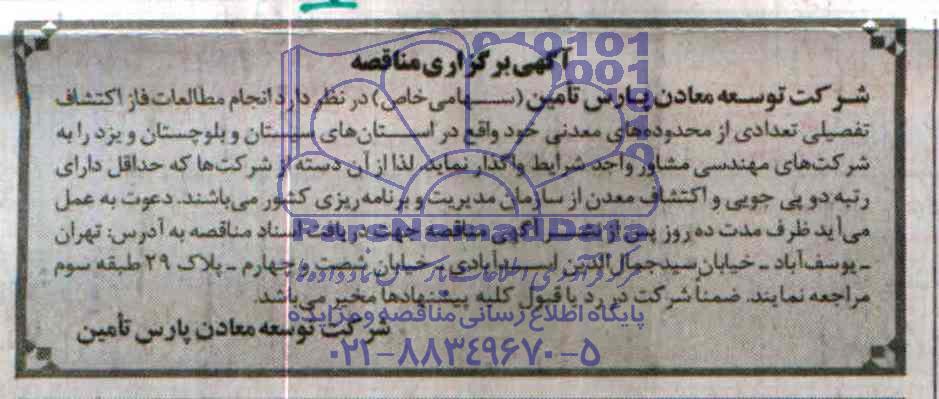 آگهی برگزاری مناقصه
شرکت توسعه معادن پارس تأمین (سهامی خاص) در نظر دارد انجام مطالعات فاز اکتشاف
تفصیلی تعدادی از محدوده‌های معدنی خود واقع در استان‌های سیستان و بلوچستان و یزد را به
شرکت‌های مهندسی مشاور واجد شرایط واگذار نماید. لذا از آن دسته از شرکت‌ها که حداقل دارای
رتبه دو پی جویی و اکتشاف معدن از سازمان مدیریت و برنامه‌ریزی کشور می‌باشند. دعوت به عمل
می‌آید ظرف مدت ده روز پس از نشر آگهی مناقصه جهت دریافت اسناد مناقصه به آدرس: تهران
ـ یوسف‌آباد ـ خیابان سیدجمال‌الدین اسدآبادی ـ خیابان شصت و چهارم ـ پلاک ۲۹ طبقه سوم
مراجعه نمایند. ضمناً شرکت در رد یا قبول کلیه پیشنهادها مخیر می‌باشد.
شرکت توسعه معادن پارس تأمین
ParsNamadData
پایگاه اطلاع رسانی مناقصه و مزایده
۰۲۱-۸۸۳۴۹۶۷۰-۵